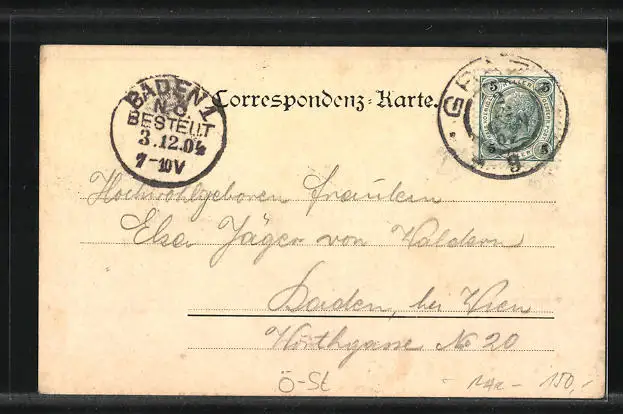 Correspondenz-Karte.
BADEN 1
N.Ö.
BESTELLT
3.12.04
7-10V
5 5
5 5
Hochwohlgeboren Fräulein
Elsa Jäger von Waldson
Baden, bei Wien
Wörthgasse № 20
Ö-St
150,-